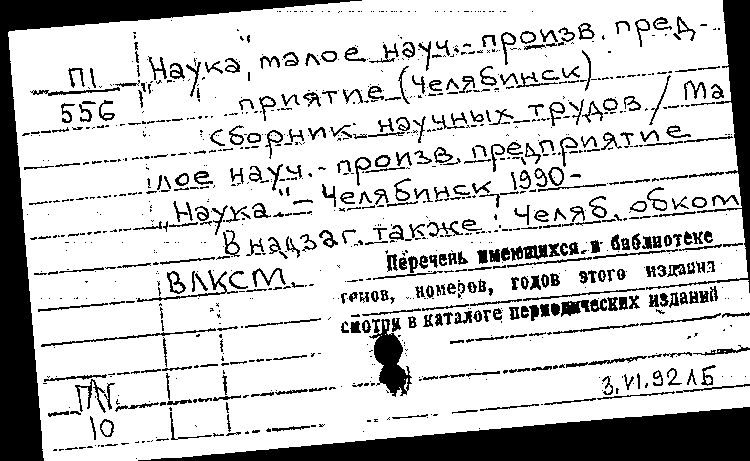 П1
556
"Наука", малое науч.-произв. пред-
приятие (Челябинск)
сборник научных трудов / Ма
лое науч.-произв. предприятие
"Наука". – Челябинск, 1990-
В надзаг. также: Челяб. обком
ВЛКСМ.
Перечень имеющихся в библиотеке
томов, номеров, годов этого издания
смотри в каталоге периодических изданий
10
3.VI.92 ЛБ